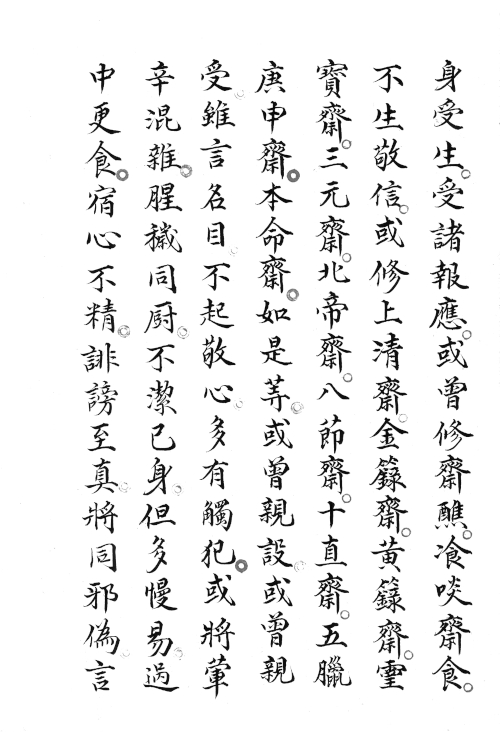 身受生受諸報應或曾修齋醮飡啖齋食
不生敬信或修上清齋金籙齋黃籙齋靈
寶齋三元齋北帝齋八節齋十直齋五臘
庚申齋本命齋如是荨或曾親設或曾親
受雖言名目不起敬心多有觸犯或將葷
辛混雜腥穢同厨不潔己身但多慢易過
中更食宿心不精誹謗至真將同邪偽言